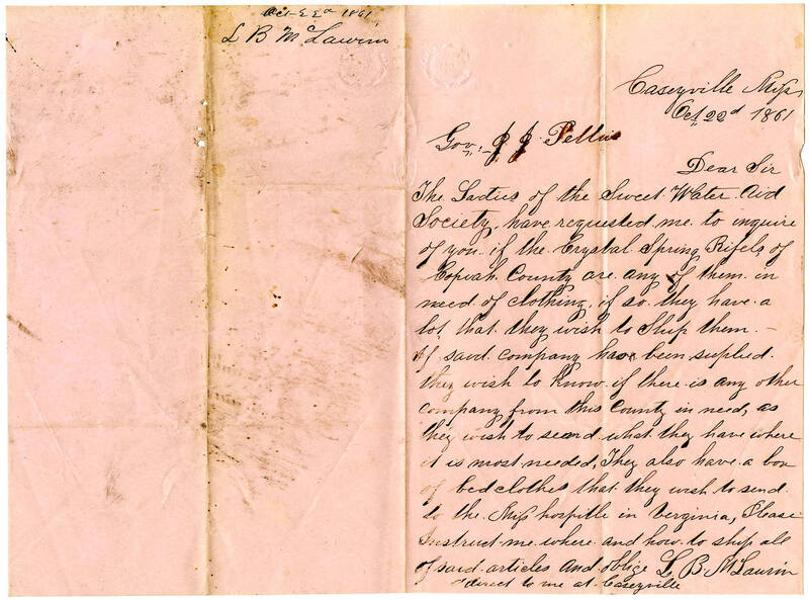 Oct 22d 1861
L B McLaurin
Caseyville Miss
Oct 22d 1861
Gov. J J. Pettus
Dear Sir
The Ladies of the Sweet Water Aid
Society, have requested me to inquire
of you if the Crystal Spring Rifels of
Copiah County are any of them in
need of clothing, if so they have a
lot that they wish to Ship them. -
If said company have been suplied
they wish to know if there is any other
company from this County in need, as
they wish to send what they have where
it is most needed, They also have a box
of bedclothes that they wish to send
to the Miss hospitle in Verginia, Please
instruct me where and how to ship all
of said articles And oblige L. B. McLaurin
direct to me at Caseyville